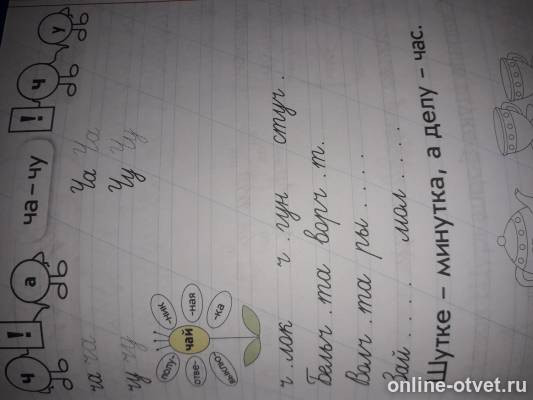 ч ! а ча – чу ч ! у
ча ча Ча Ча
чу чу Чу Чу
полу- -ник
отве- чай -ная
выклю- -ка
ч . лок ч . гун стуч .
Бельч . та ворч . т.
Волч . та ры . . . .
Зай . . . . мол . . . .
Шутке – минутка, а делу – час.
online-otvet.ru